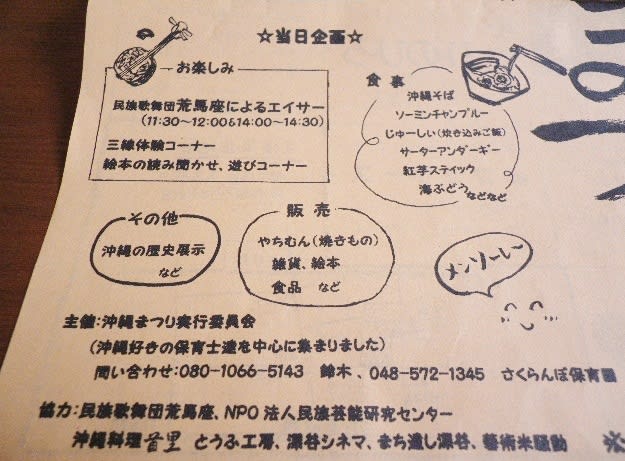 ☆当日企画☆
お楽しみ
民族歌舞団荒馬座によるエイサー
(11:30〜12:00&14:00〜14:30)
三線体験コーナー
絵本の読み聞かせ、遊びコーナー
食事
沖縄そば
ソーミンチャンプルー
じゅーしい(炊き込みご飯)
サーターアンダーギー
紅芋スティック
海ぶどうなどなど
その他
沖縄の歴史展示
など
販売
やちむん(焼きもの)
雑貨、絵本
食品 など
メンソーレー
主催:沖縄まつり実行委員会
(沖縄好きの保育士達を中心に集まりました)
問い合わせ:080-1066-5143 鈴木、048-572-1345 さくらんぼ保育園
協力:民族歌舞団荒馬座、NPO法人民族芸能研究センター
沖縄料理音里 とうふ工房、深谷シネマ、まち遺し深谷、藝術米騒動